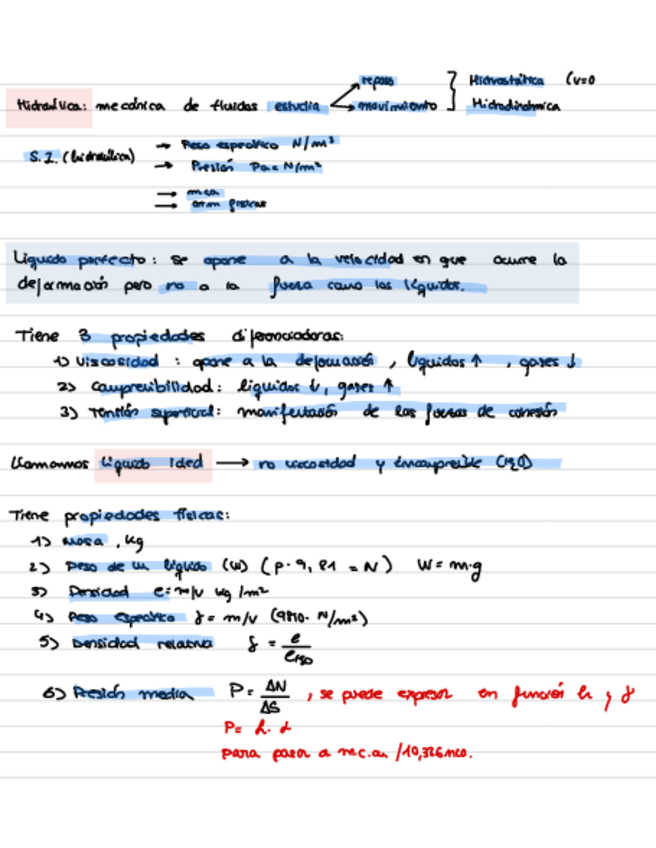 reposo Hidrostática (v=0
Hidraúlica: mecánica de fluidos estudia movimiento Hidrodinámica
S.I. (hidraúlica) → Peso específico N/m³
→ Presión Pa = N/m²
→ mca
→ atm
Líquido perfecto: se opone a la velocidad en que ocurre la
deformación pero no a la fuerza como los líquidos.
Tiene 3 propiedades diferenciadoras:
1) Viscosidad: opone a la deformación, líquidos ↑, gases ↓
2) Compresibilidad: líquidos ↓, gases ↑
3) Tensión superficial: manifestación de las fuerzas de cohesión
Llamamos líquido ideal → no viscosidad y incompresible (H₂O)
Tiene propiedades físicas:
1) Masa, kg
2) Peso de un líquido (W) (p·9,81 = N) W = m·g
3) Densidad e = m/v kg/m³
4) Peso específico γ = m/v (9810· N/m³)
5) Densidad relativa δ = e / e H₂O
6) Presión media P = ΔN / ΔS, se puede expresar en función h y γ
P = h · γ
para pasar a m.c.a /10,326